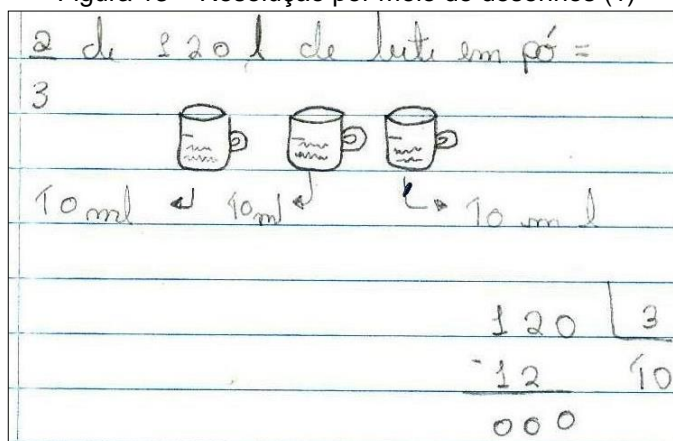 Resolução por meio de desenhos (1)
2 de 120 l de leite em pó =
3
40 ml 40 ml 40 ml
120 3
-12 40
000